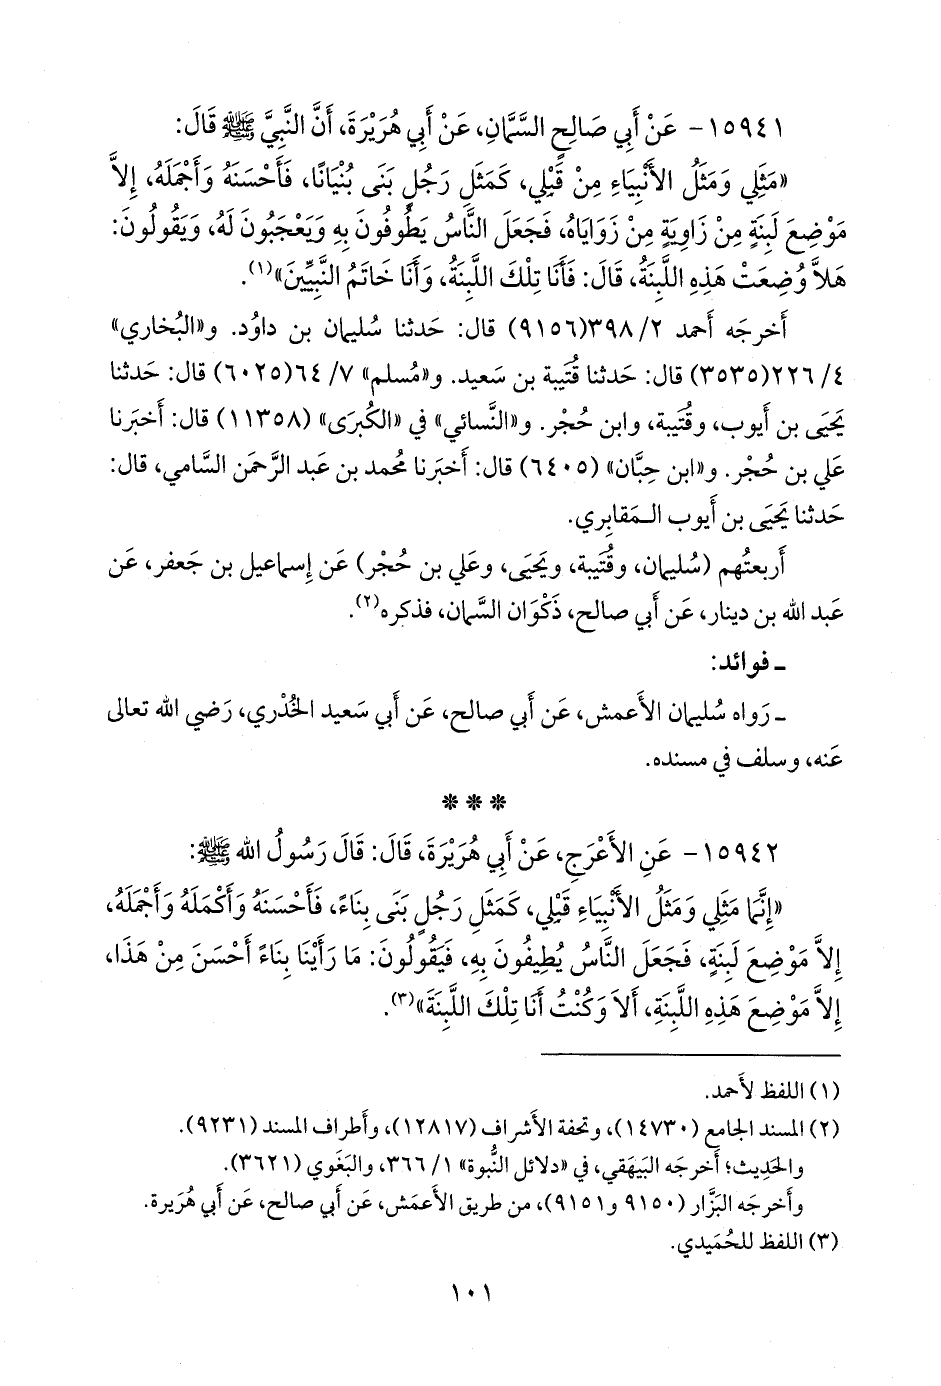 ١٥٩٤١- عَنْ أَبِي صَالِحٍ السَّمَّانِ، عَنْ أَبِي هُرَيْرَةَ، أَنَّ النَّبِيَّ ﷺ قَالَ:
«مَثَلِي وَمَثَلُ الأَنْبِيَاءِ مِنْ قَبْلِي، كَمَثَلِ رَجُلٍ بَنَى بُنْيَانًا، فَأَحْسَنَهُ وَأَجْمَلَهُ، إِلاَّ
مَوْضِعَ لَبِنَةٍ مِنْ زَاوِيَةٍ مِنْ زَوَايَاهُ، فَجَعَلَ النَّاسُ يَطُوفُونَ بِهِ وَيَعْجَبُونَ لَهُ، وَيَقُولُونَ:
هَلاَّ وُضِعَتْ هَذِهِ اللَّبِنَةُ، قَالَ: فَأَنَا تِلْكَ اللَّبِنَةُ، وَأَنَا خَاتَمُ النَّبِيِّينَ»(١).
أَخرجَه أَحمد ٢/ ٣٩٨(٩١٥٦) قال: حَدثنا سُليمان بن داوُد. و«البُخاري»
٤/ ٢٢٦(٣٥٣٥) قال: حَدثنا قُتَيبة بن سَعيد. و«مُسلم» ٧/ ٦٤(٦٠٢٥) قال: حَدثنا
يَحيَى بن أَيوب، وقُتَيبة، وابن حُجْر. و«النَّسائي» في «الكُبرَى» (١١٣٥٨) قال: أَخبَرنا
علي بن حُجْر. و«ابن حِبَّان» (٦٤٠٥) قال: أَخبَرنا مُحمد بن عَبد الرَّحمَن السَّامي، قال:
حَدثنا يَحيَى بن أَيوب المَقابِري.
أَربعتُهم (سُليمان، وقُتَيبة، ويَحيَى، وعَلي بن حُجْر) عَن إِسماعيل بن جَعفر، عَن
عَبد الله بن دينار، عَن أَبي صالح، ذَكْوَان السَّمان، فذكره(٢).
ـ فوائد:
ـ رَواه سُليمان الأَعمش، عَن أَبي صالح، عَن أَبي سَعيد الخُدْري، رَضي الله تعالى
عَنه، وسلف في مسنده.
***
١٥٩٤٢- عَنِ الأَعْرَجِ، عَنْ أَبِي هُرَيْرَةَ، قَالَ: قَالَ رَسُولُ الله ﷺ:
«إِنَّمَا مَثَلِي وَمَثَلُ الأَنْبِيَاءِ قَبْلِي، كَمَثَلِ رَجُلٍ بَنَى بِنَاءً، فَأَحْسَنَهُ وَأَكْمَلَهُ وَأَجْمَلَهُ،
إِلاَّ مَوْضِعَ لَبِنَةٍ، فَجَعَلَ النَّاسُ يُطِيفُونَ بِهِ، فَيَقُولُونَ: مَا رَأَيْنَا بِنَاءً أَحْسَنَ مِنْ هَذَا،
إِلاَّ مَوْضِعَ هَذِهِ اللَّبِنَةِ، أَلاَ وَكُنْتُ أَنَا تِلْكَ اللَّبِنَةَ»(٣).
(١) اللفظ لأَحمد.
(٢) المسند الجامع (١٤٧٣٠)، وتحفة الأَشراف (١٢٨١٧)، وأَطراف المسند (٩٢٣١).
والحَدِيث؛ أَخرجَه البَيهَقي، في «دلائل النُّبوة» ١/ ٣٦٦، والبَغَوي (٣٦٢١).
وأَخرجَه البَزَّار (٩١٥٠ و٩١٥١)، من طريق الأَعمَش، عَن أَبي صالح، عَن أَبي هُرَيرة.
(٣) اللفظ للحُمَيدي.
١٠١